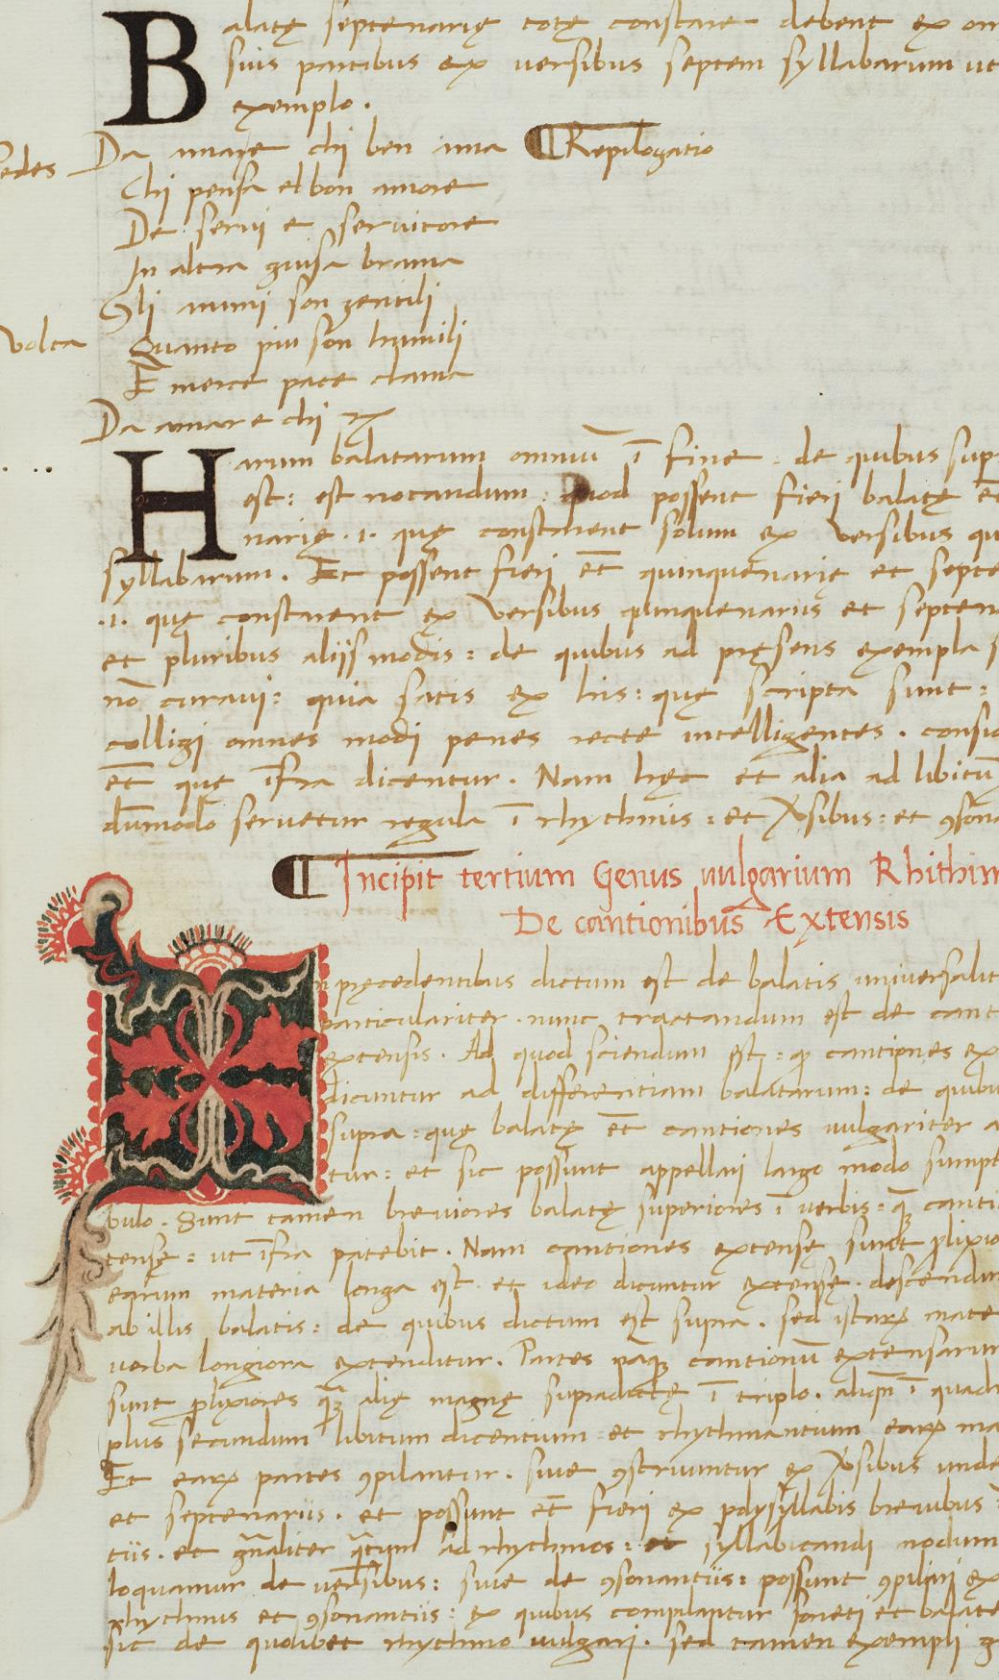 Balatę septenarię totę constare debent ex om
suis partibus ex versibus septem syllabarum ut
exemplo.
Pedes Da amare chi ben ama ¶ Repilogatio
Chi pensa el bon amore
De servi e servitore
In altra guisa brama
Gli animi son gentili
Volta Quanto piu son humili
E merce pace clama
Da amare chi
Harum balatarum omniū ī fine. de quibus sup
est: est notandum: quod possent fieri balatę et̄
narię .i. quę constarent solum ex versibus qu
syllabarum. Et possent fieri et̄ quinquenarię et septe
.i. quę constarent ex versibus quinquenariis et septen
et pluribus aliis modis: de quibus ad pręsens exempla s
nō curavi: quia satis ex his: quę scripta sunt:
colligi omnes modi penes recte intelligentes. consid
et̄ que īfra dicentur. Nam hęc et alia ad libitū
dūmodo servetur regula ī rhythmis: et v̄sibus: et ɔsona
¶ Incipit tertium Genus vulgarium Rhithim
De cantionibus Extensis
In pręcedentibus dictum est de balatis universalit
particulariter. nunc tractandum est de cant
extensis. Ad quod sciendum est: ꝙ cantiones ex
dicuntur ad differentiam balatarum: de quibu
supra: quę balatę et̄ cantiones vulgariter a
tur: et sic possunt appellari largo modo sumpt
bulo. Sunt tamen breviores balatę superiores ī verbis: q̄ꝫ canti
tensę: ut īfra patebit. Nam cantiones extensę sunt ꝓlixio
earum materia longa est. et ideo dicuntur extensę. descendun
ab illis balatis: de quibus dictum est supra. sed istaꝝ mate
verba longiora extenditur. Partes naqꝫ cantionū extensarum
sunt ꝓlixiores q̄ꝫ alię magnę supradictę ī triplo. aliqn̄ ī quadr
plus secundum libitum dicentium et rhythmantium eaꝝ ma
Et eaꝝ partes ɔpilantur. sive ɔstruuntur ex v̄sibus unde
et septenariis. et possunt et̄ fieri ex polysyllabis brevibus
tiis. et gn̄aliter q̄tum ad rhythmos: et syllabicandi modum
loquamur de versibus: sive de ɔsonantiis: possunt ɔpilari ex
rhythmis et ɔsonantiis: ex quibus compilantur soneti et balate
sic de quolibet rhythmo vulgari. sed tamen exempli g